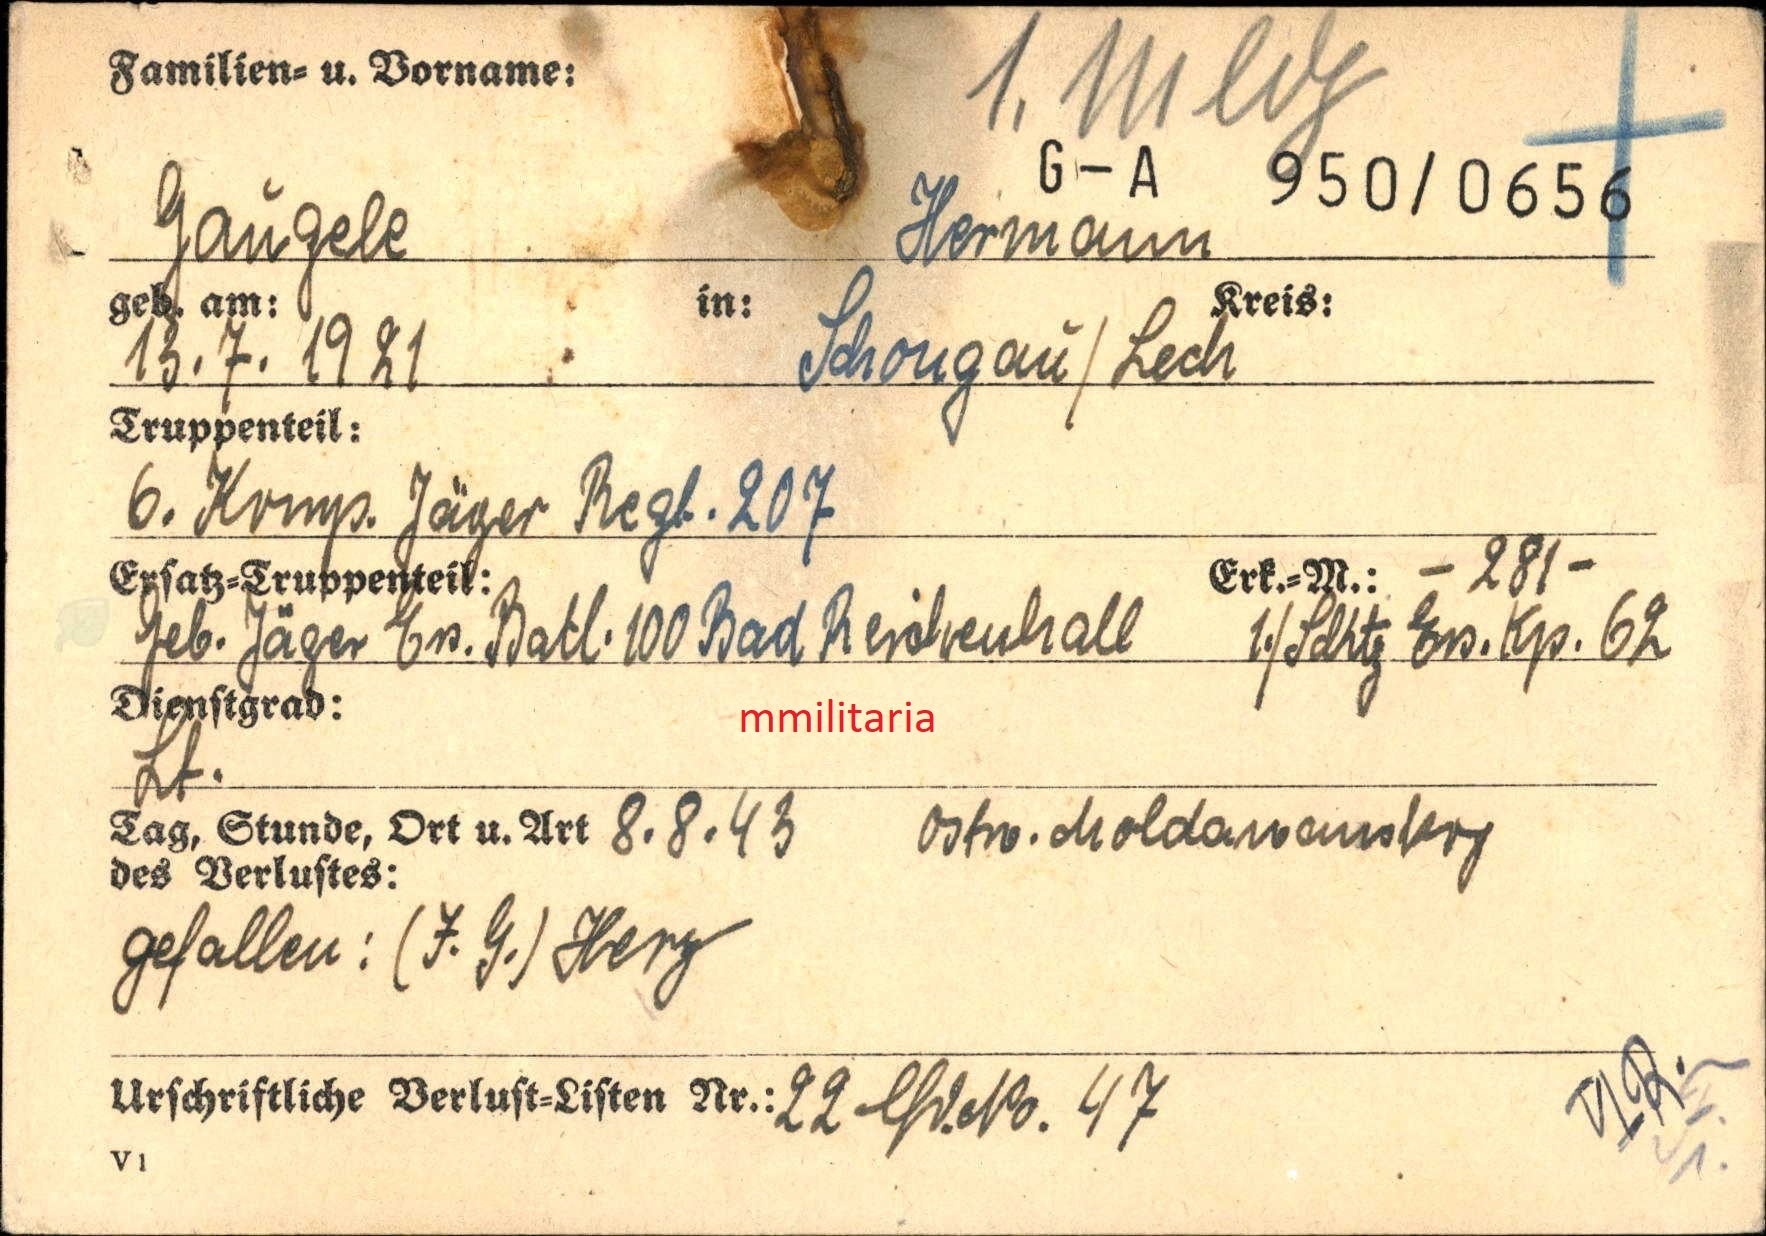 1. Mldg
Familien- u. Vorname:
G-A 950/0656
Gaugele Hermann
geb. am: in: Kreis:
13.7.1921 Schongau/Lech
Truppenteil:
6. Komp. Jäger Regt. 207
Ersatz-Truppenteil: Erk.-M.: -281-
Geb. Jäger Ers. Batl. 100 Bad Reichenhall 1./Schtz Ers. Kp. 62
Dienstgrad:
mmilitaria
Lt.
Tag, Stunde, Ort u. Art 8.8.43 ostw. Moldawanskoy
des Verlustes:
gefallen: (I. G.) Herz
Urschriftliche Verlust-Listen Nr.: 22 lfd. No. 47
V 1